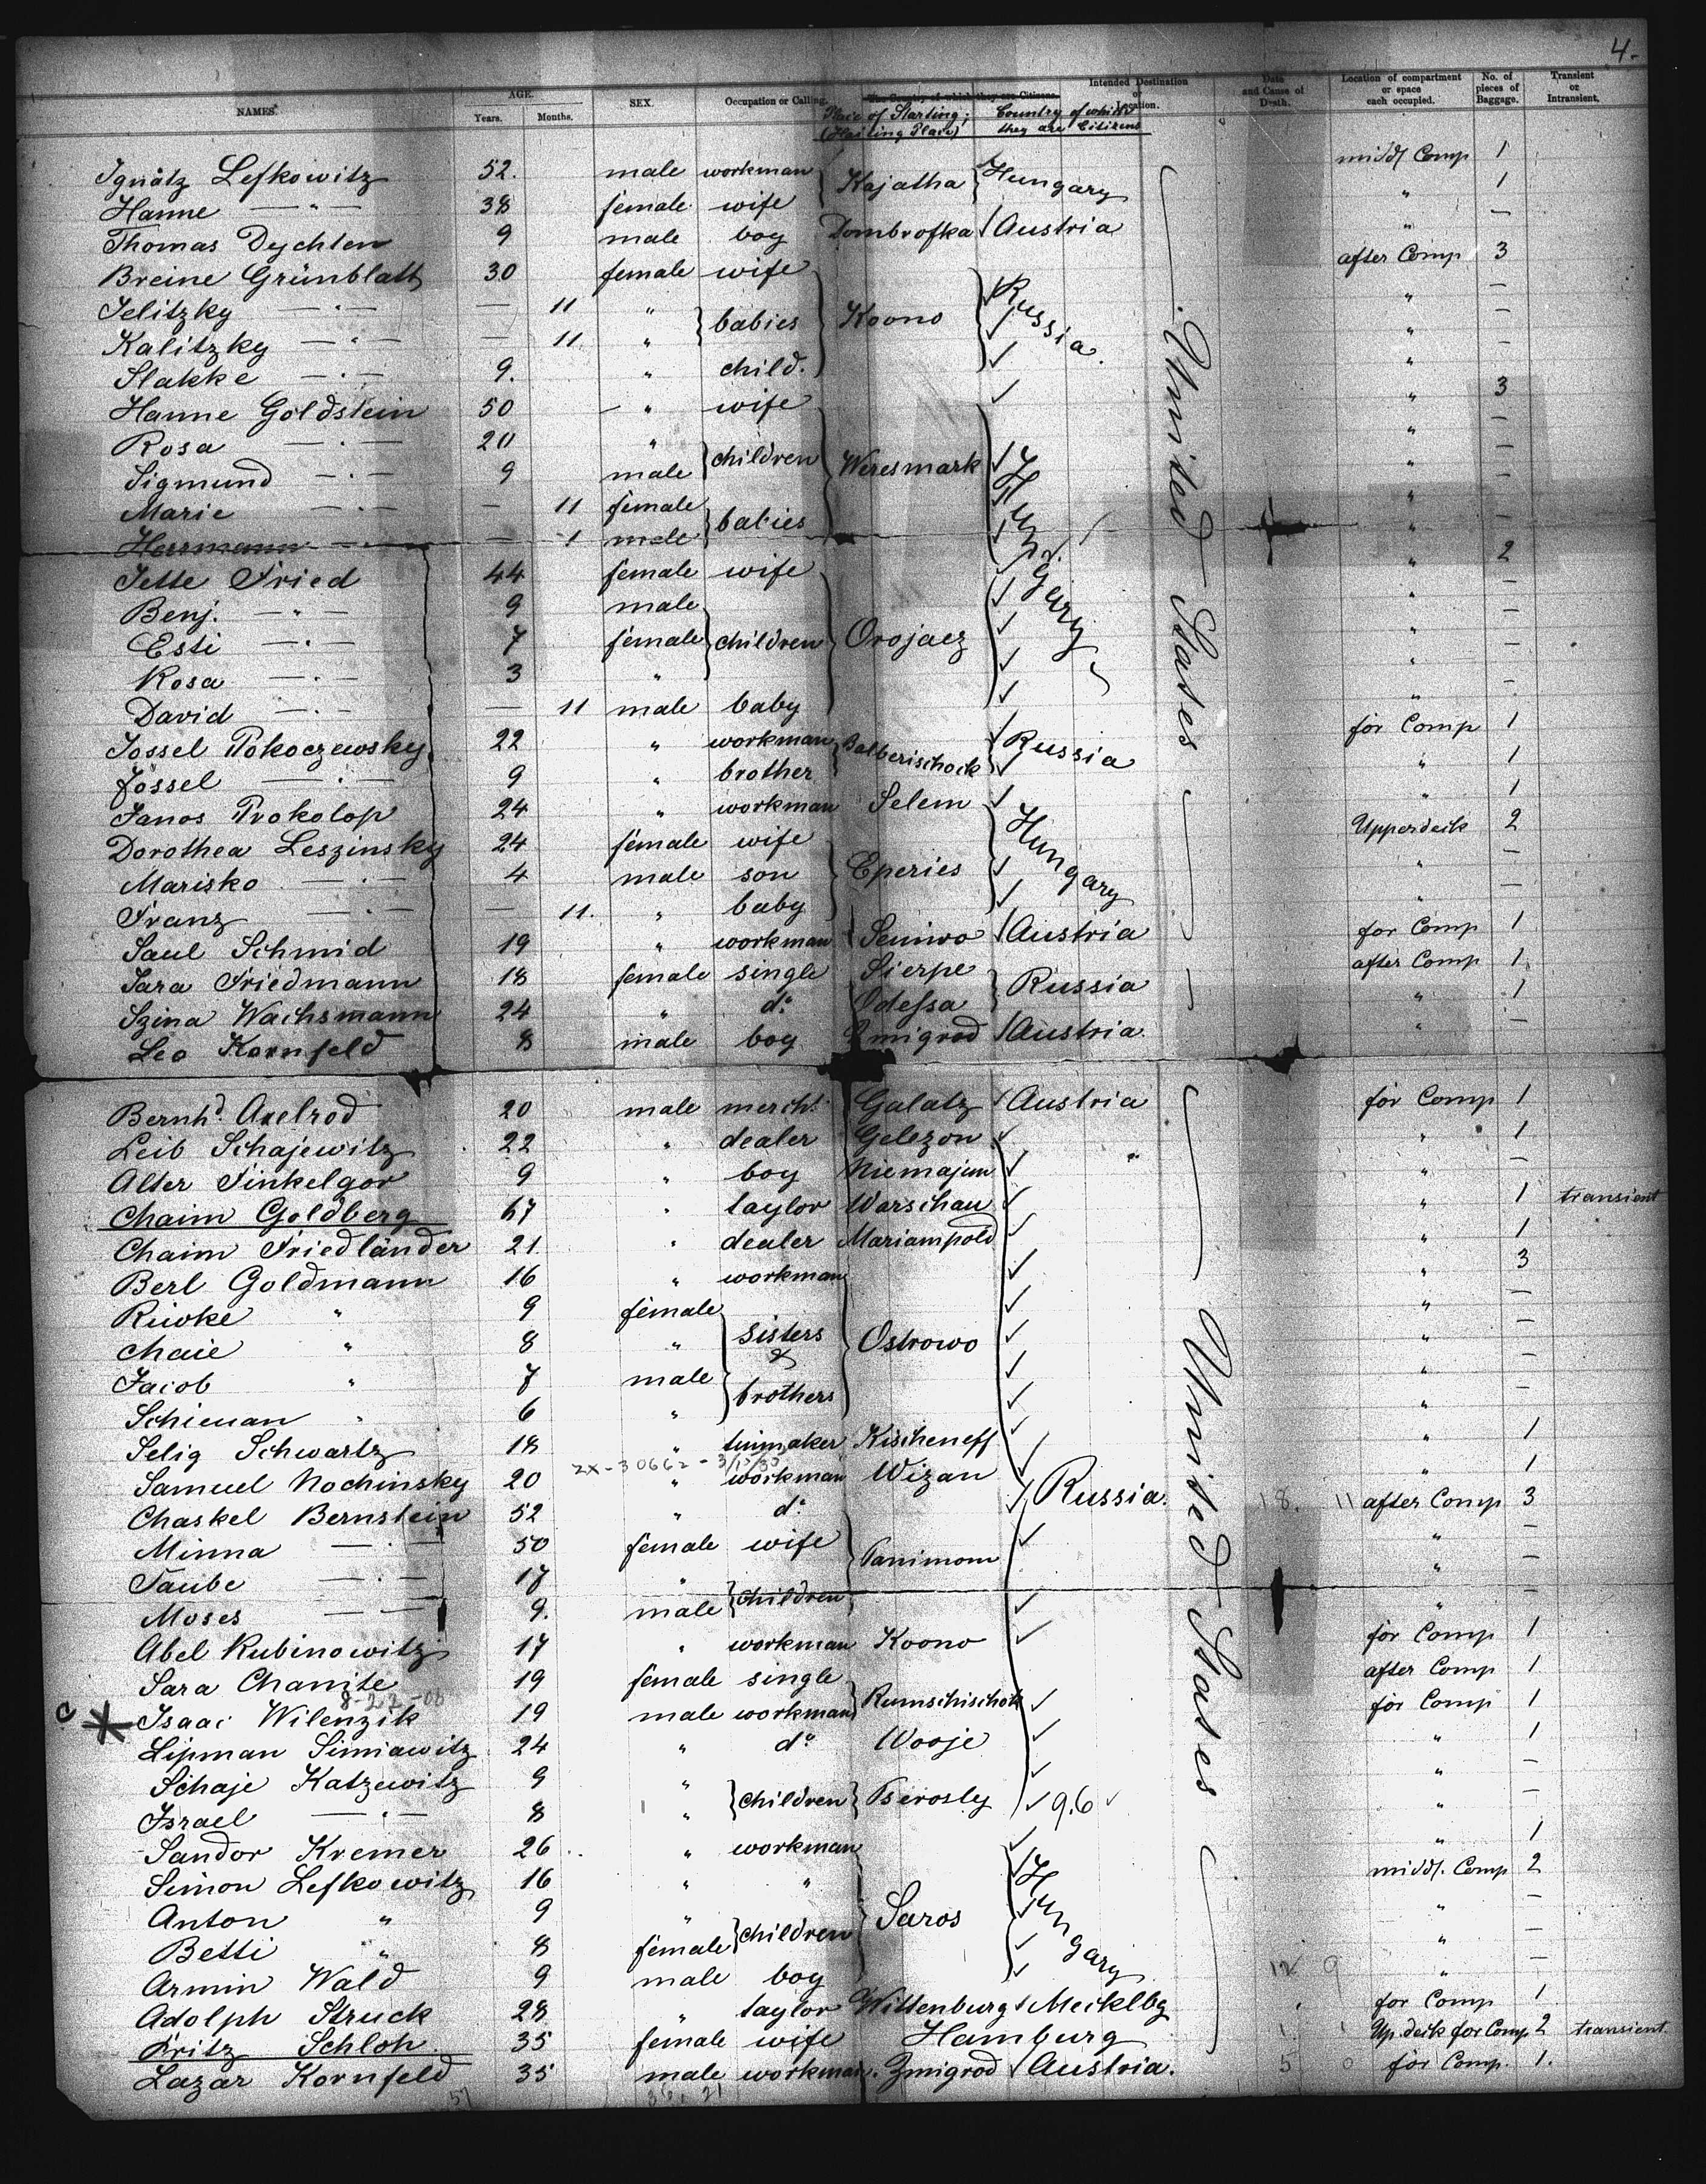 4.
NAMES. AGE. Years. Months. SEX. Occupation or Calling. The Country of which they are Citizens. Intended Destination or Location. Date and Cause of Death. Location of compartment or space each occupied. No. of pieces of Baggage. Transient or Intransient.
Place of Starting; (Starting Place) Country of which they are Citizens
Ignatz Lefkowitz 52. male workman Kajatha Hungary middl Comp 1
Hanne — " — 38 female wife " 1
Thomas Dychten 9 male boy Dombrofka Austria " —
Breine Grünblatt 30 female wife Koono Russia after Comp 3
Jelitzky — " — — 11 " babies " —
Kalitzky — " — — 11 " " —
Slakke — " — 9. " child. " —
Hanne Goldstein 50 " wife Weresmark Hungary " 3
Rosa — " — 20 " children " —
Sigmund — " — 9 male " —
Marie — " — — 11 female babies " —
Herrmann — " — — 1 male " —
Jette Fried 44 female wife Orojacz " 2
Benj. — " — 9 male children " —
Esti — " — 7 female " —
Rosa — " — 3 " " —
David — " — — 11 male baby " —
Jossel Pokoczewsky 22 " workman Balberischock Russia for Comp 1
Jössel — " — 9 " brother " 1
Janos Prokolop 24 " workman Selem Hungary " 1
Dorothea Leszinsky 24 female wife Eperies Upperdeck 2
Marisko — " — 4 male son " —
Franz — " — — 11. " baby " —
Saul Schmid 19 " workman Seniwo Austria for Comp 1
Sara Friedmann 18 female single Sierpe Russia after Comp 1
Szina Wachsmann 24 " do. Odessa " 1
Leo Kornfeld 8 male boy Zmigrod Austria. " —
United States
Bernhd. Axelrod 20 male mercht. Galatz Austria for Comp 1
Leib Schajewitz 22 " dealer Gelezon " " 1
Alter Finkelgor 9 " boy Niemajun " —
Chaim Goldberg 67 " taylor Warschau " 1 transient
Chaim Friedländer 21 " dealer Mariampold " 1
Berl Goldmann 16 " workman Ostrowo " 3
Riwke " 9 female sisters & brothers " —
Chaie " 8 " " —
Jacob " 7 male " —
Schieman " 6 " " —
Selig Schwartz 18 " tinmaker Kischeneff " 1
2x-30662 - 3/15/35
Samuel Nochinsky 20 " workman Wizan " 1
Chaskel Bernstein 52 " do. Tanimom Russia. 18. 11 after Comp 3
Minna — " — 50 female wife " —
Taube — " — 17 " children " —
Moses — " — 9. male " —
Abel Rubinowitz 17 " workman Koono for Comp 1
Sara Chamite 19 female single Rumschischok after Comp 1
8-22-06
C X Isaac Wilenzik 19 male workman for Comp 1
Lipman Simiawitz 24 " do. Wooje " 1
Schaje Katzewitz 9 " children Tserosly " —
Israel — " — 8 " 9.6 " —
Sandor Kremer 26 " workman Saros Hungary " 1
Simon Lefkowitz 16 " " middl. Comp 2
Anton " 9 " children " —
Betti " 8 female " —
Armin Wald 9 male boy 12 9 " —
Adolph Struck 28 " taylor Wittenburg Mecklbg for Comp 1
Fritz Schloh. 35 female wife Hamburg Up. deck for Comp 2 transient
Lazar Kornfeld 35 male workman. Zmigrod Austria. 5 0 for Comp. 1.
United States
57